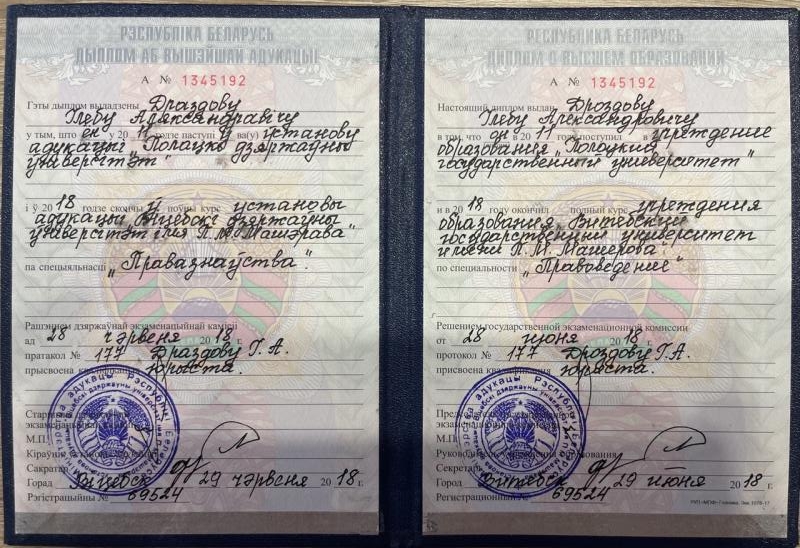 РЭСПУБЛІКА БЕЛАРУСЬ
ДЫПЛОМ АБ ВЫШЭЙШАЙ АДУКАЦЫІ
А № 1345192
Гэты дыплом выдадзены Драздову
Глебу Аляксандравічу
у тым, што ён у 2011 годзе паступіў у ва(ў) установу
адукацыі "Полацкі дзяржаўны
ўніверсітэт"
і ў 2018 годзе скончыў поўны курс установы
адукацыі "Віцебскі дзяржаўны
ўніверсітэт імя П.М. Машэрава"
па спецыяльнасці "Правазнаўства".
Рашэннем дзяржаўнай экзаменацыйнай камісіі
ад 28 чэрвеня 2018 г.
пратакол № 177 Драздову Г.А.
прысвоена кваліфікацыя юрыста.
М.П.
Сакратар
Горад Віцебск 29 чэрвеня 2018 г.
Рэгістрацыйны № 69524
РЕСПУБЛИКА БЕЛАРУСЬ
ДИПЛОМ О ВЫСШЕМ ОБРАЗОВАНИИ
А № 1345192
Настоящий диплом выдан Дроздову
Глебу Александровичу
в том, что он в 2011 году поступил в учреждение
образования "Полоцкий
государственный университет"
и в 2018 году окончил полный курс учреждения
образования "Витебский
государственный университет
имени П.М. Машерова"
по специальности "Правоведение".
Решением государственной экзаменационной комиссии
от 28 июня 2018 г.
протокол № 177 Дроздову Г.А.
присвоена квалификация юриста.
М.П.
Секретарь
Город Витебск 29 июня 2018 г.
Регистрационный № 69524